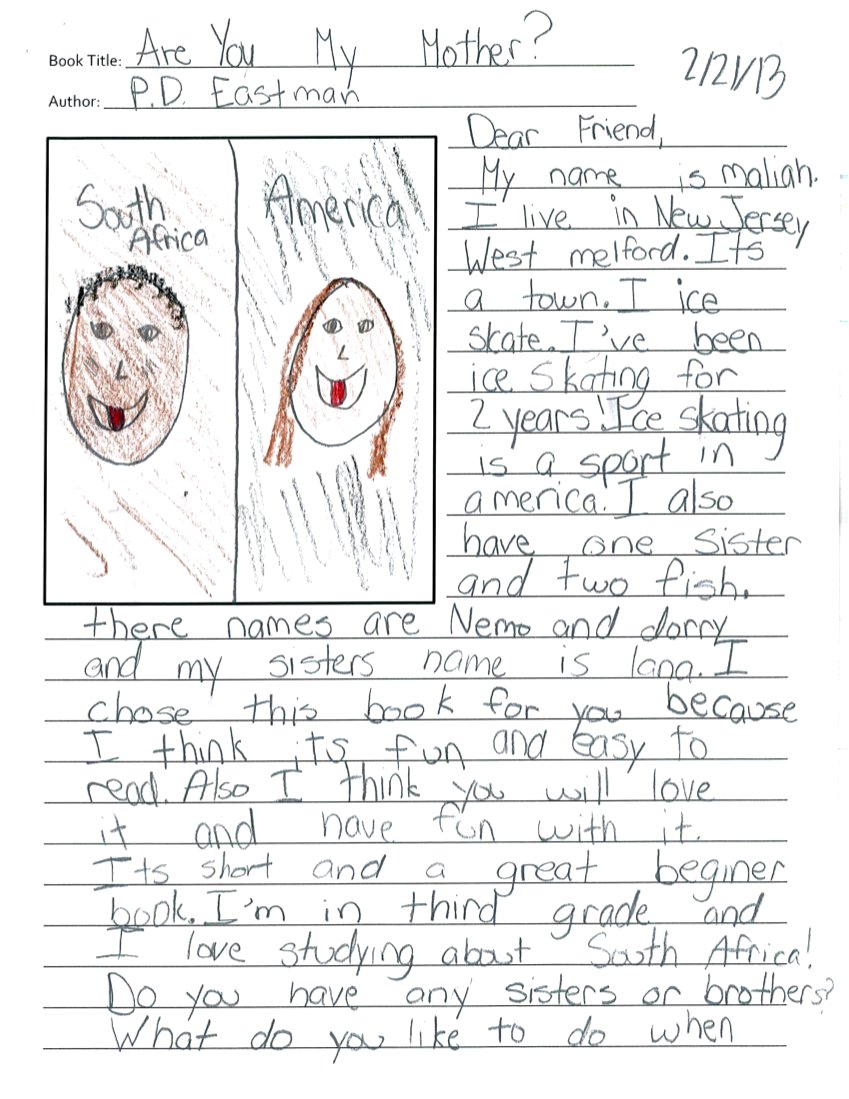 Book Title: Are You My Mother?
Author: P.D. Eastman
2/21/13
South
Africa
America
Dear Friend,
My name is maliah.
I live in New Jersey
West melford. Its
a town. I ice
skate. I've been
ice skating for
2 years! Ice skating
is a sport in
america! I also
have one sister
and two fish.
there names are Nemo and dorry
and my sisters name is lana. I
chose this book for you because
I think its fun and easy to
read. Also I think you will love
it and have fun with it.
Its short and a great beginer
book. I'm in third grade and
I love studying about South Africa!
Do you have any sisters or brothers?
What do you like to do when